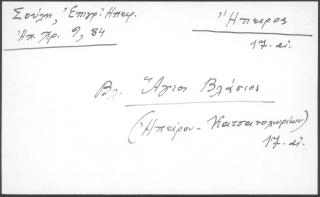 Σούλη, Ἐπιγρ. Ἠπείρ.
Ἠπ. Χρ. 9, 84
Ἤπειρος
17. αἰ.
Βλ. Ἅγιος Βλάσιος
(Ἠπείρου - Κατσανοχωρίων)
17. αἰ.